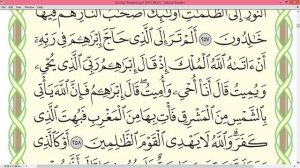 النُّورِ إِلَى الظُّلُمَاتِ أُولَٰئِكَ أَصْحَابُ النَّارِ هُمْ فِيهَا
خَالِدُونَ ٢٥٧ أَلَمْ تَرَ إِلَى الَّذِي حَاجَّ إِبْرَاهِيمَ فِي رَبِّهِ
أَنْ آتَاهُ اللَّهُ الْمُلْكَ إِذْ قَالَ إِبْرَاهِيمُ رَبِّيَ الَّذِي يُحْيِي
وَيُمِيتُ قَالَ أَنَا أُحْيِي وَأُمِيتُ قَالَ إِبْرَاهِيمُ فَإِنَّ اللَّهَ يَأْتِي
بِالشَّمْسِ مِنَ الْمَشْرِقِ فَأْتِ بِهَا مِنَ الْمَغْرِبِ فَبُهِتَ الَّذِي
كَفَرَ وَاللَّهُ لَا يَهْدِي الْقَوْمَ الظَّالِمِينَ ٢٥٨ أَوْ كَالَّذِي